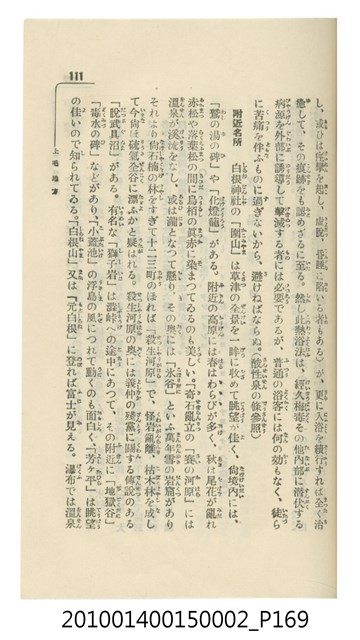 111
上毛地方
し、或ひは痙攣を起し、虚脱、昏睡に陥いる者もある」が、更に入浴を續行すれば全く治
癒して、その痕跡をも認めざるに至る。然し此熱浴法は、經久梅毒その他內部に潜伏する
病源を外部に誘導して擊滅する者には必要であるが、普通の浴客には何の効もなく、徒ら
に苦痛を伴ふものに過ぎないから、避けねばならぬ。(酸性泉の條參照)
附近名所
白根神社の「圍山」は草津の全景を一眸に收めて眺望が佳く、尙境內には、
「鷲の湯の碑」や「化燈籠」がある。附近の高原には春はわらびが多く、秋は尾花が亂れ
赤松や落葉松の間に鳥栢の眞赤に染まつてゐるのも美しい。「奇石亂立の「賽の河原」には
溫泉が溪流をなし、或は瀧となつて懸り、その奧には「氷谷」といふ氷萬年雪の岩窟があり
それより尙石楠の林をすぎて十二三町のぼれば「殺生河原」で、怪岩亂離、枯木林を成し
て今尙ほ硫氣全谷に漂ふかと暴はれる。殺生河原の奧には義仲の殘黨に關する傳說のある
「說武具沼」がある。有名な「獅子岩」は澁峠への途中にあつて、その附近に「地獄谷」
「毒水の碑」などがあり、「小蓋池」の浮島の風につれて動くのも面白く、「芳ヶ平」は眺望
の佳いので知られてゐる。「白根」又は「元白根」に登れば富士が見える。瀑布では溫泉
201001400150002_P169